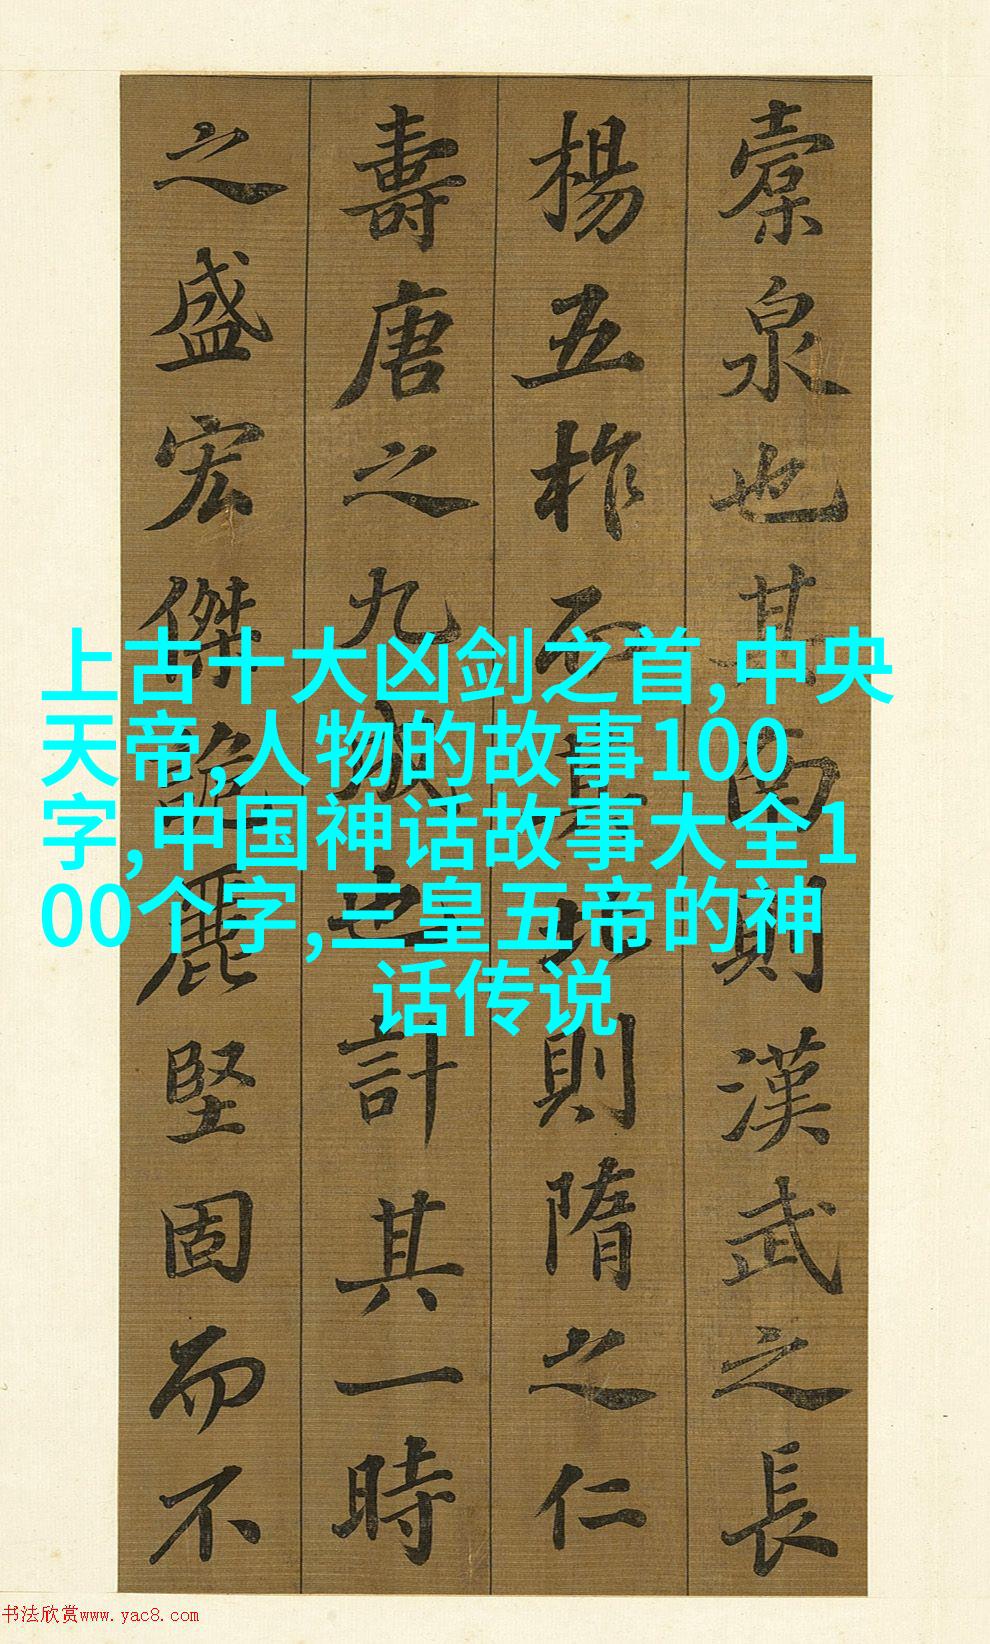 橐泉也其南則漢武之長
楊五柞而其北則隋之仁
壽唐之九成也計其一時
之盛宏傑詭麗堅固而不
上古十大凶剑之首,中央
天帝,人物的故事100
字,中国神话故事大全1
00个字,三皇五帝的神
话传说
书法欣赏www.yac8.com